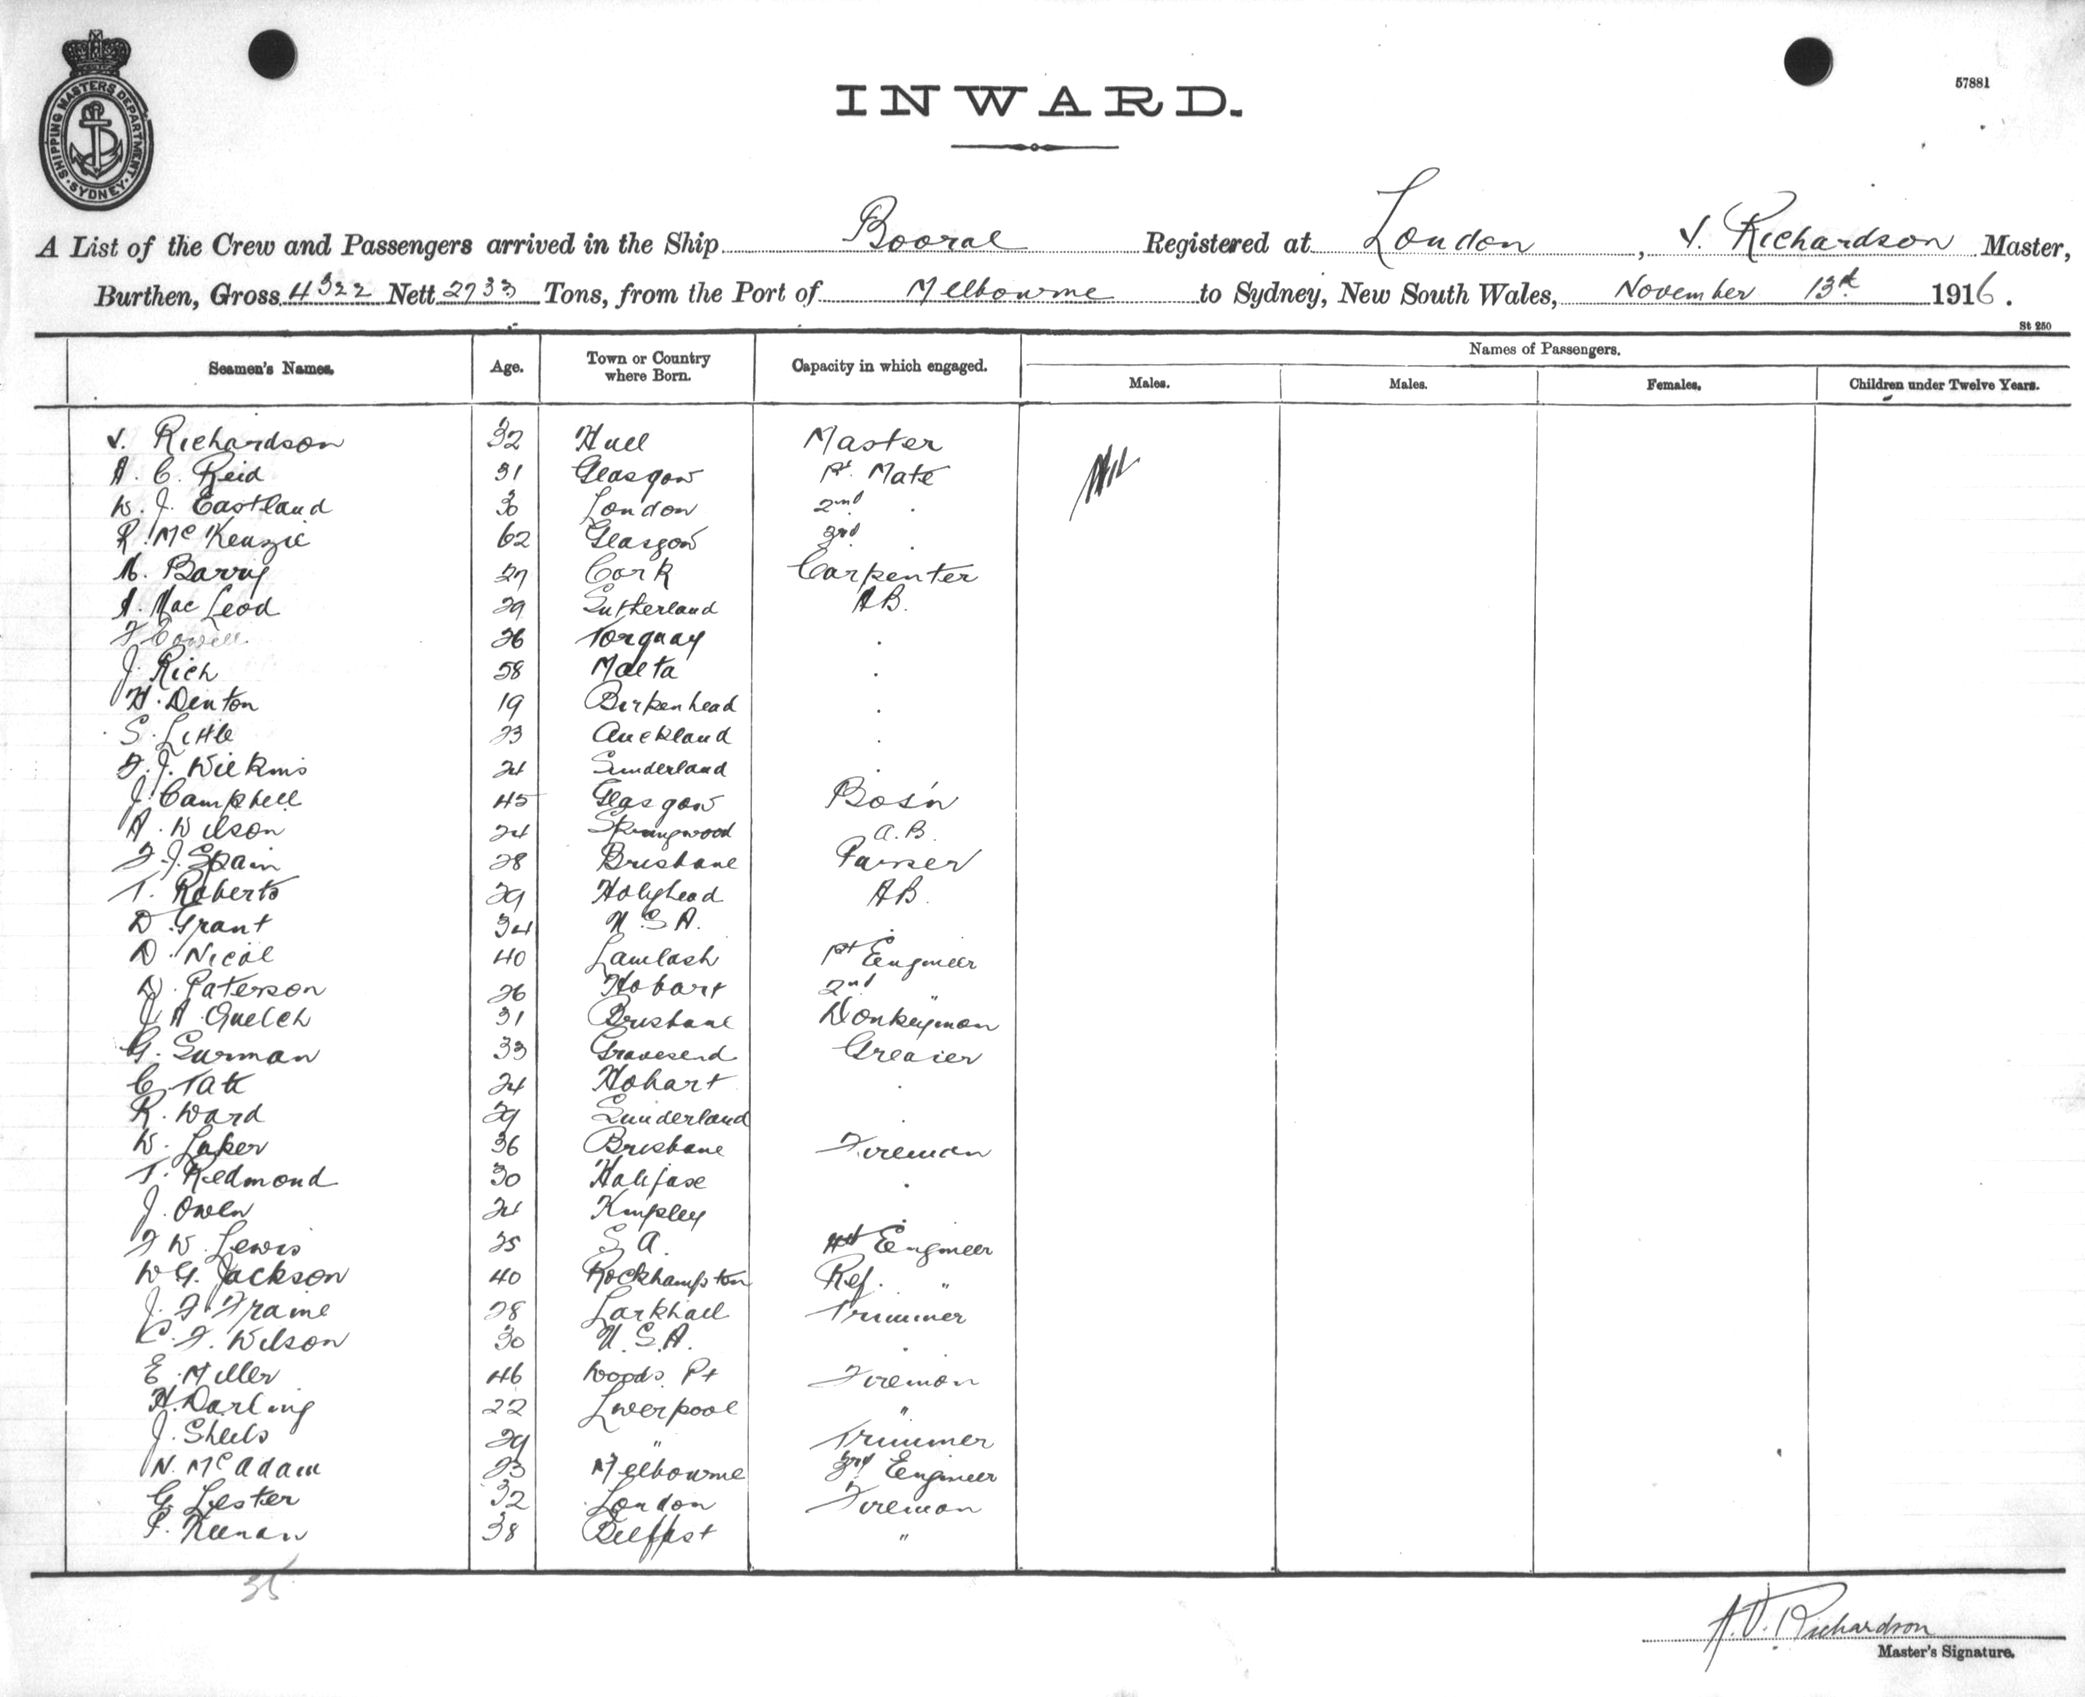 SHIPPING MASTERS DEPARTMENT
SYDNEY
57881
INWARD.
A List of the Crew and Passengers arrived in the Ship Booral Registered at London, V. Richardson Master,
Burthen, Gross 4322 Nett 2733 Tons, from the Port of Melbourne to Sydney, New South Wales, November 13th 1916.
St 250
Seamen's Names. Age. Town or Country where Born. Capacity in which engaged. Names of Passengers.
Males. Males. Females. Children under Twelve Years.
V. Richardson 32 Hull Master
A. C. Reid 31 Glasgow 1st Mate Nil
W. J. Eastland 30 London 2nd .
R. McKenzie 62 Glasgow 3rd .
M. Barry 27 Cork Carpenter
A. MacLeod 29 Sutherland AB.
F Cowell 26 Torquay .
J. Rich 58 Malta .
H. Denton 19 Birkenhead .
S. Little 23 Auckland .
F. J. Wilkins 24 Sunderland .
J. Campbell 45 Glasgow Bos'n
A. Wilson 24 Springwood A.B.
F. J. Spain 28 Brisbane Purser
T. Roberts 29 Holyhead AB.
D. Grant 34 U.S.A. .
D. Nicol 40 Lamlash 1st Engineer
D. Paterson 26 Hobart 2nd "
J A Quelch 31 Brisbane Donkeyman
G. Surman 33 Gravesend Greaser
C. Tate 24 Hobart .
R. Ward 29 Sunderland .
W. Laker 36 Brisbane Fireman
T. Redmond 30 Halifax .
J. Owen 24 Kingsley .
F W. Lewis 25 S A. 4th Engineer
W G. Jackson 40 Rockhampton Ref. "
J. F. Frame 28 Larkhall Trimmer
C. F. Wilson 30 U.S.A. .
E. Miller 46 Woods Pt Fireman
H. Darling 22 Liverpool "
J. Sheils 29 " Trimmer
N. McAdam 23 Melbourne 3rd Engineer
G. Lester 32 London Fireman
P. Keenan 38 Belfast "
35
A.V. Richardson
Master's Signature.